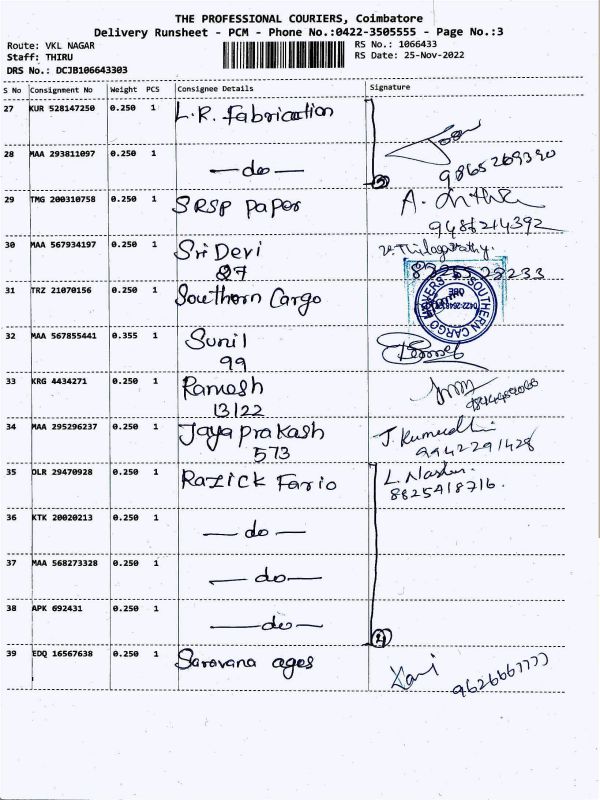 THE PROFESSIONAL COURIERS, Coimbatore
Delivery Runsheet - PCM - Phone No.:0422-3505555 - Page No.:3
Route: VKL NAGAR RS No.: 1066433
Staff: THIRU RS Date: 25-Nov-2022
DRS No.: DCJB106643303
S No Consignment No Weight PCS Consignee Details Signature
27 KUR 528147250 0.250 1 L.R. Fabrication
28 MAA 293811097 0.250 1 — do — 9865269390
2
29 TMG 200310758 0.250 1 SRSP paper A.
9486214392
30 MAA 567934197 0.250 1 Sri Devi
87 8725528233
31 TRZ 21070156 0.250 1 Southern Cargo
SOUTHERN CARGO MOVERS
32 MAA 567855441 0.355 1 Sunil
99
33 KRG 4434271 0.250 1 Ramesh
13122
34 MAA 295296237 0.250 1 Jaya prakash J.
573 9942291428
35 DLR 29470928 0.250 1 Razick Fario L.
8825418716.
36 KTK 20020213 0.250 1 — do —
37 MAA 568273328 0.250 1 — do —
38 APK 692431 0.250 1 — do —
4
39 EDQ 16567638 0.250 1 Saravana ages
9626661777